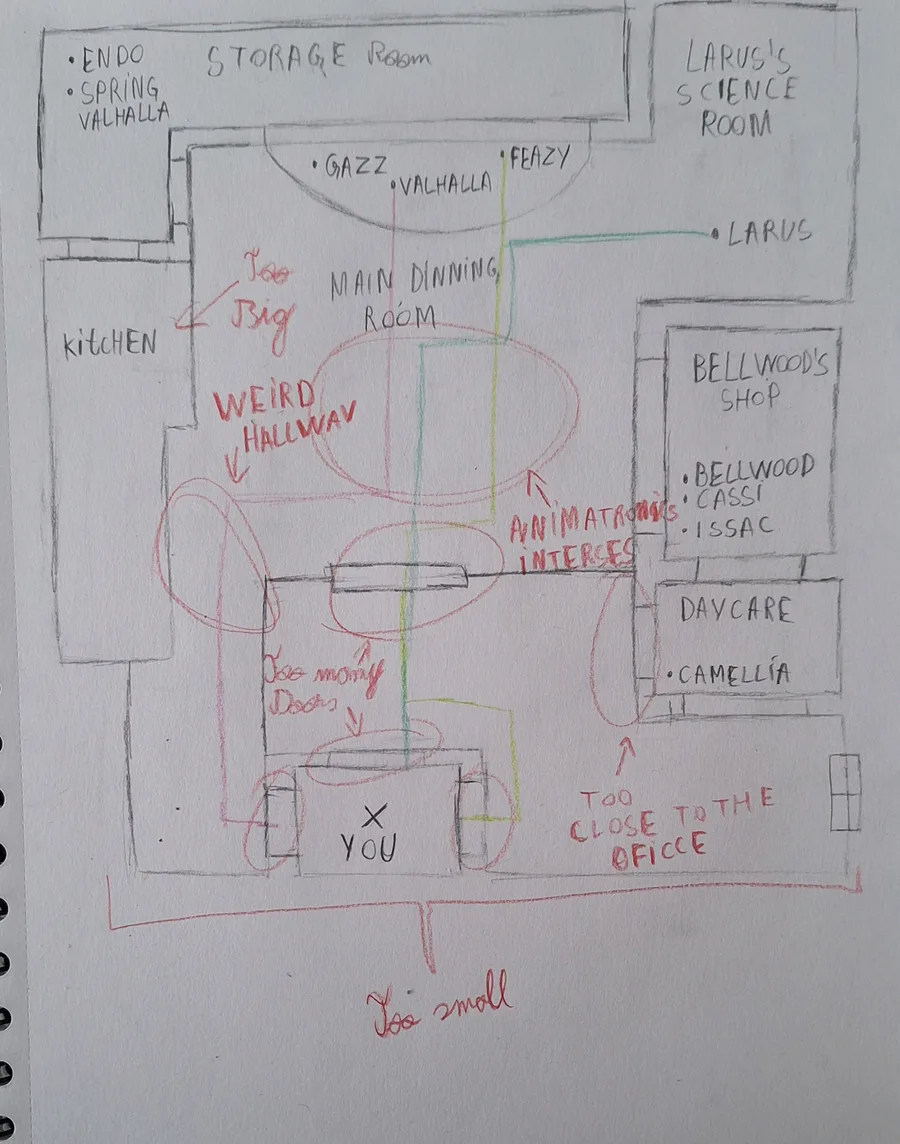 • ENDO
• SPRING
VALHALLA
STORAGE Room
LARUS'S
SCIENCE
ROOM
• GAZZ
• VALHALLA
• FEAZY
• LARUS
MAIN DINNING
ROOM
Too
Big
KitCHEN
WEIRD
HALLWAV
BELLWOOD'S
SHOP
• BELLWOOD
• CASSI
• ISSAC
ANIMATRONICS
INTERCES
DAYCARE
• CAMELLIA
Too momy
Doors
TOO
CLOSE TO THE
OFICCE
X
YOU
Too small